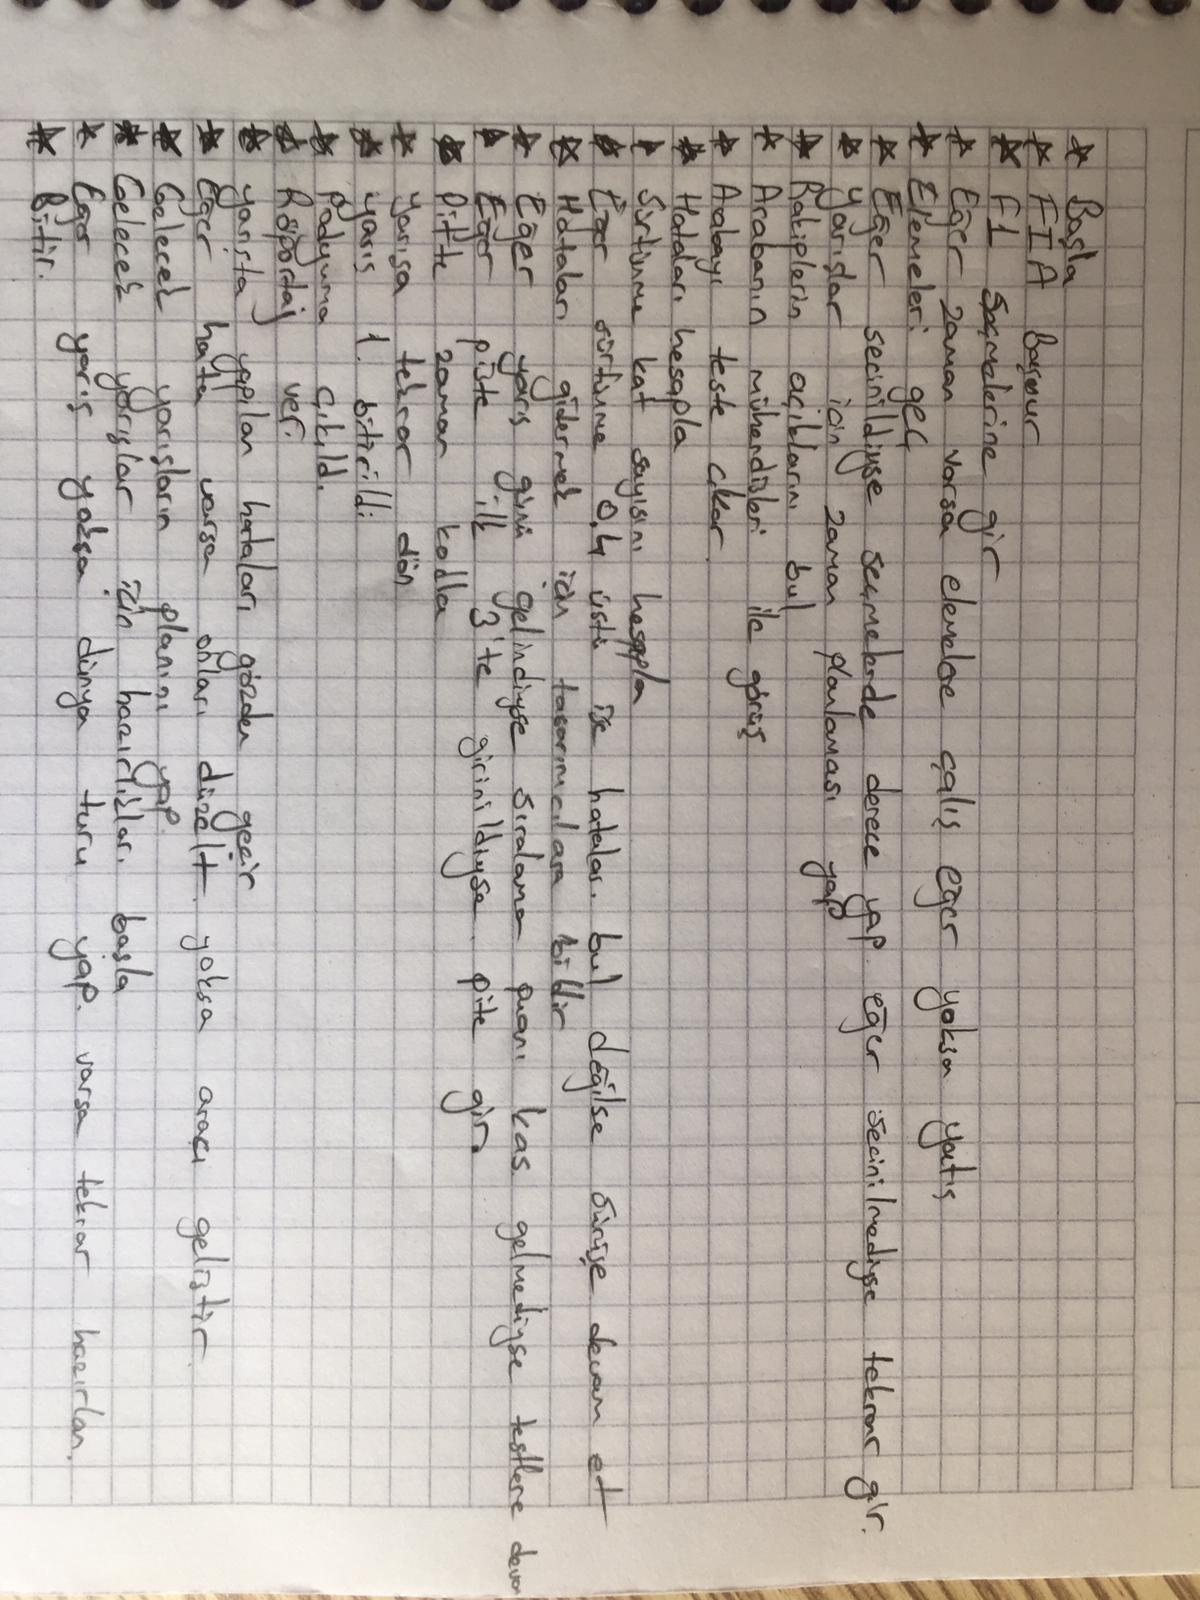 * Başla
* FIA Başvur
* F1 Seçmelerine gir
* Eğer zaman varsa elemelere çalış eğer yoksa yatış
* Elemeleri geç
* Eğer secinildiyse seçmelerde derece yap. eğer secinilmediyse tekrar gir.
* Yarışlar için zaman planlaması yap
* Rakiplerin açıklarını bul
* Arabanın mühendisleri ile görüş
* Arabayı teste çıkar.
* Hataları hesapla
* Sürtünme kat sayısını hesapla
* Eğer sürtünme 0.4 üstü ise hataları bul değilse sürüşe devam et
* Hataları gidermek için tasarımcılara bildir
* Eğer yarış günü gelindiyse sıralama puanı kas gelmediyse testlere devam
* Eğer piste ilk 3'te girinildiyse pite gir.
* Pitte zaman kodla
* yarışa tekrar dön
* yarış 1. bitirildi
* Podyuma çıkıld.
* Röportaj ver.
* yarışta yapılan hataları gözden geçir
* Eğer hata varsa onları düzelt. yoksa aracı geliştir.
* Gelecek yarışların planını yap.
* Gelecek yarışlar için hazırlıkları başla
* Eğer yarış yoksa dünya turu yap. varsa tekrar hazırlan.
* Bitir.